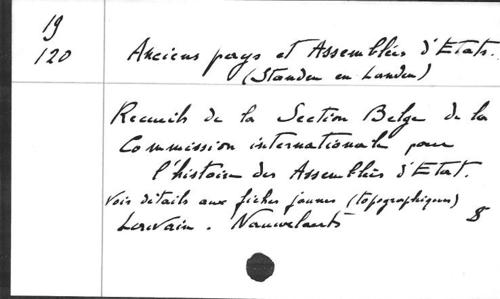 19
120
Anciens pays et Assemblées d'Etats.
(Standen en Landen)
Recueils de la Section Belge de la
Commission internationale pour
l'histoire des Assemblées d'Etat.
Voir détails aux fiches jaunes (topographiques)
Louvain. Nauwelaerts 8